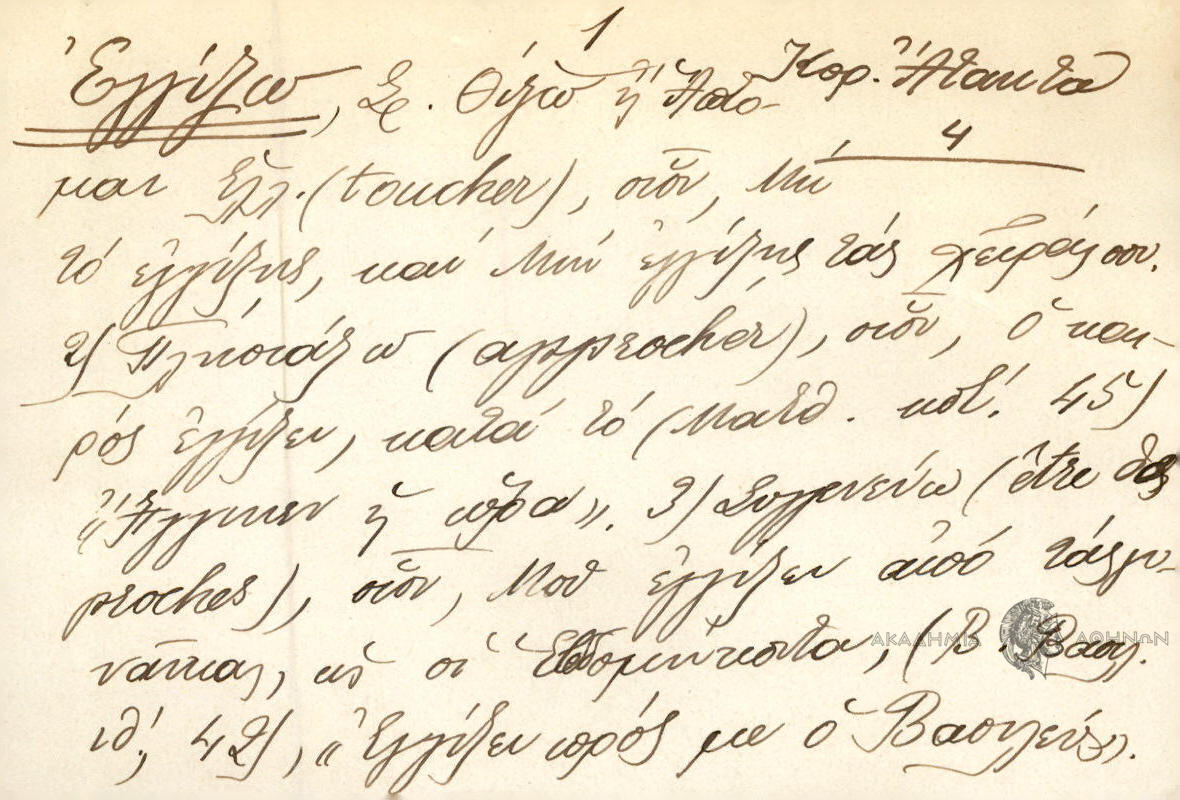 1
Ἐγγίζω, Σ. Θίγω ἢ Ἅπτο- Κορ. Ἄτακτα
μαι Ἑλλ. (toucher), οἷον, Μή 4
τό ἐγγίζης, καί Μή ἐγγίζης τάς χεῖράς σου.
2) Πλησιάζω (approcher), οἷον, Ὁ και-
ρός ἐγγίζει, κατά τό (Ματθ. κστ΄. 45)
«Ἤγγικεν ἡ ὥρα». 3) Συγγενεύω (être des
proches), οἷον, Μοῦ ἐγγίζει ἀπό τάς γυ-
ναῖκας, ὡς οἱ Ἑβδομήκοντα, (Β. Βασιλ.
ιθ΄, 42), «Ἐγγίζει πρός με ὁ Βασιλεύς».
ΑΚΑΔΗΜΙΑ ΑΘΗΝΩΝ